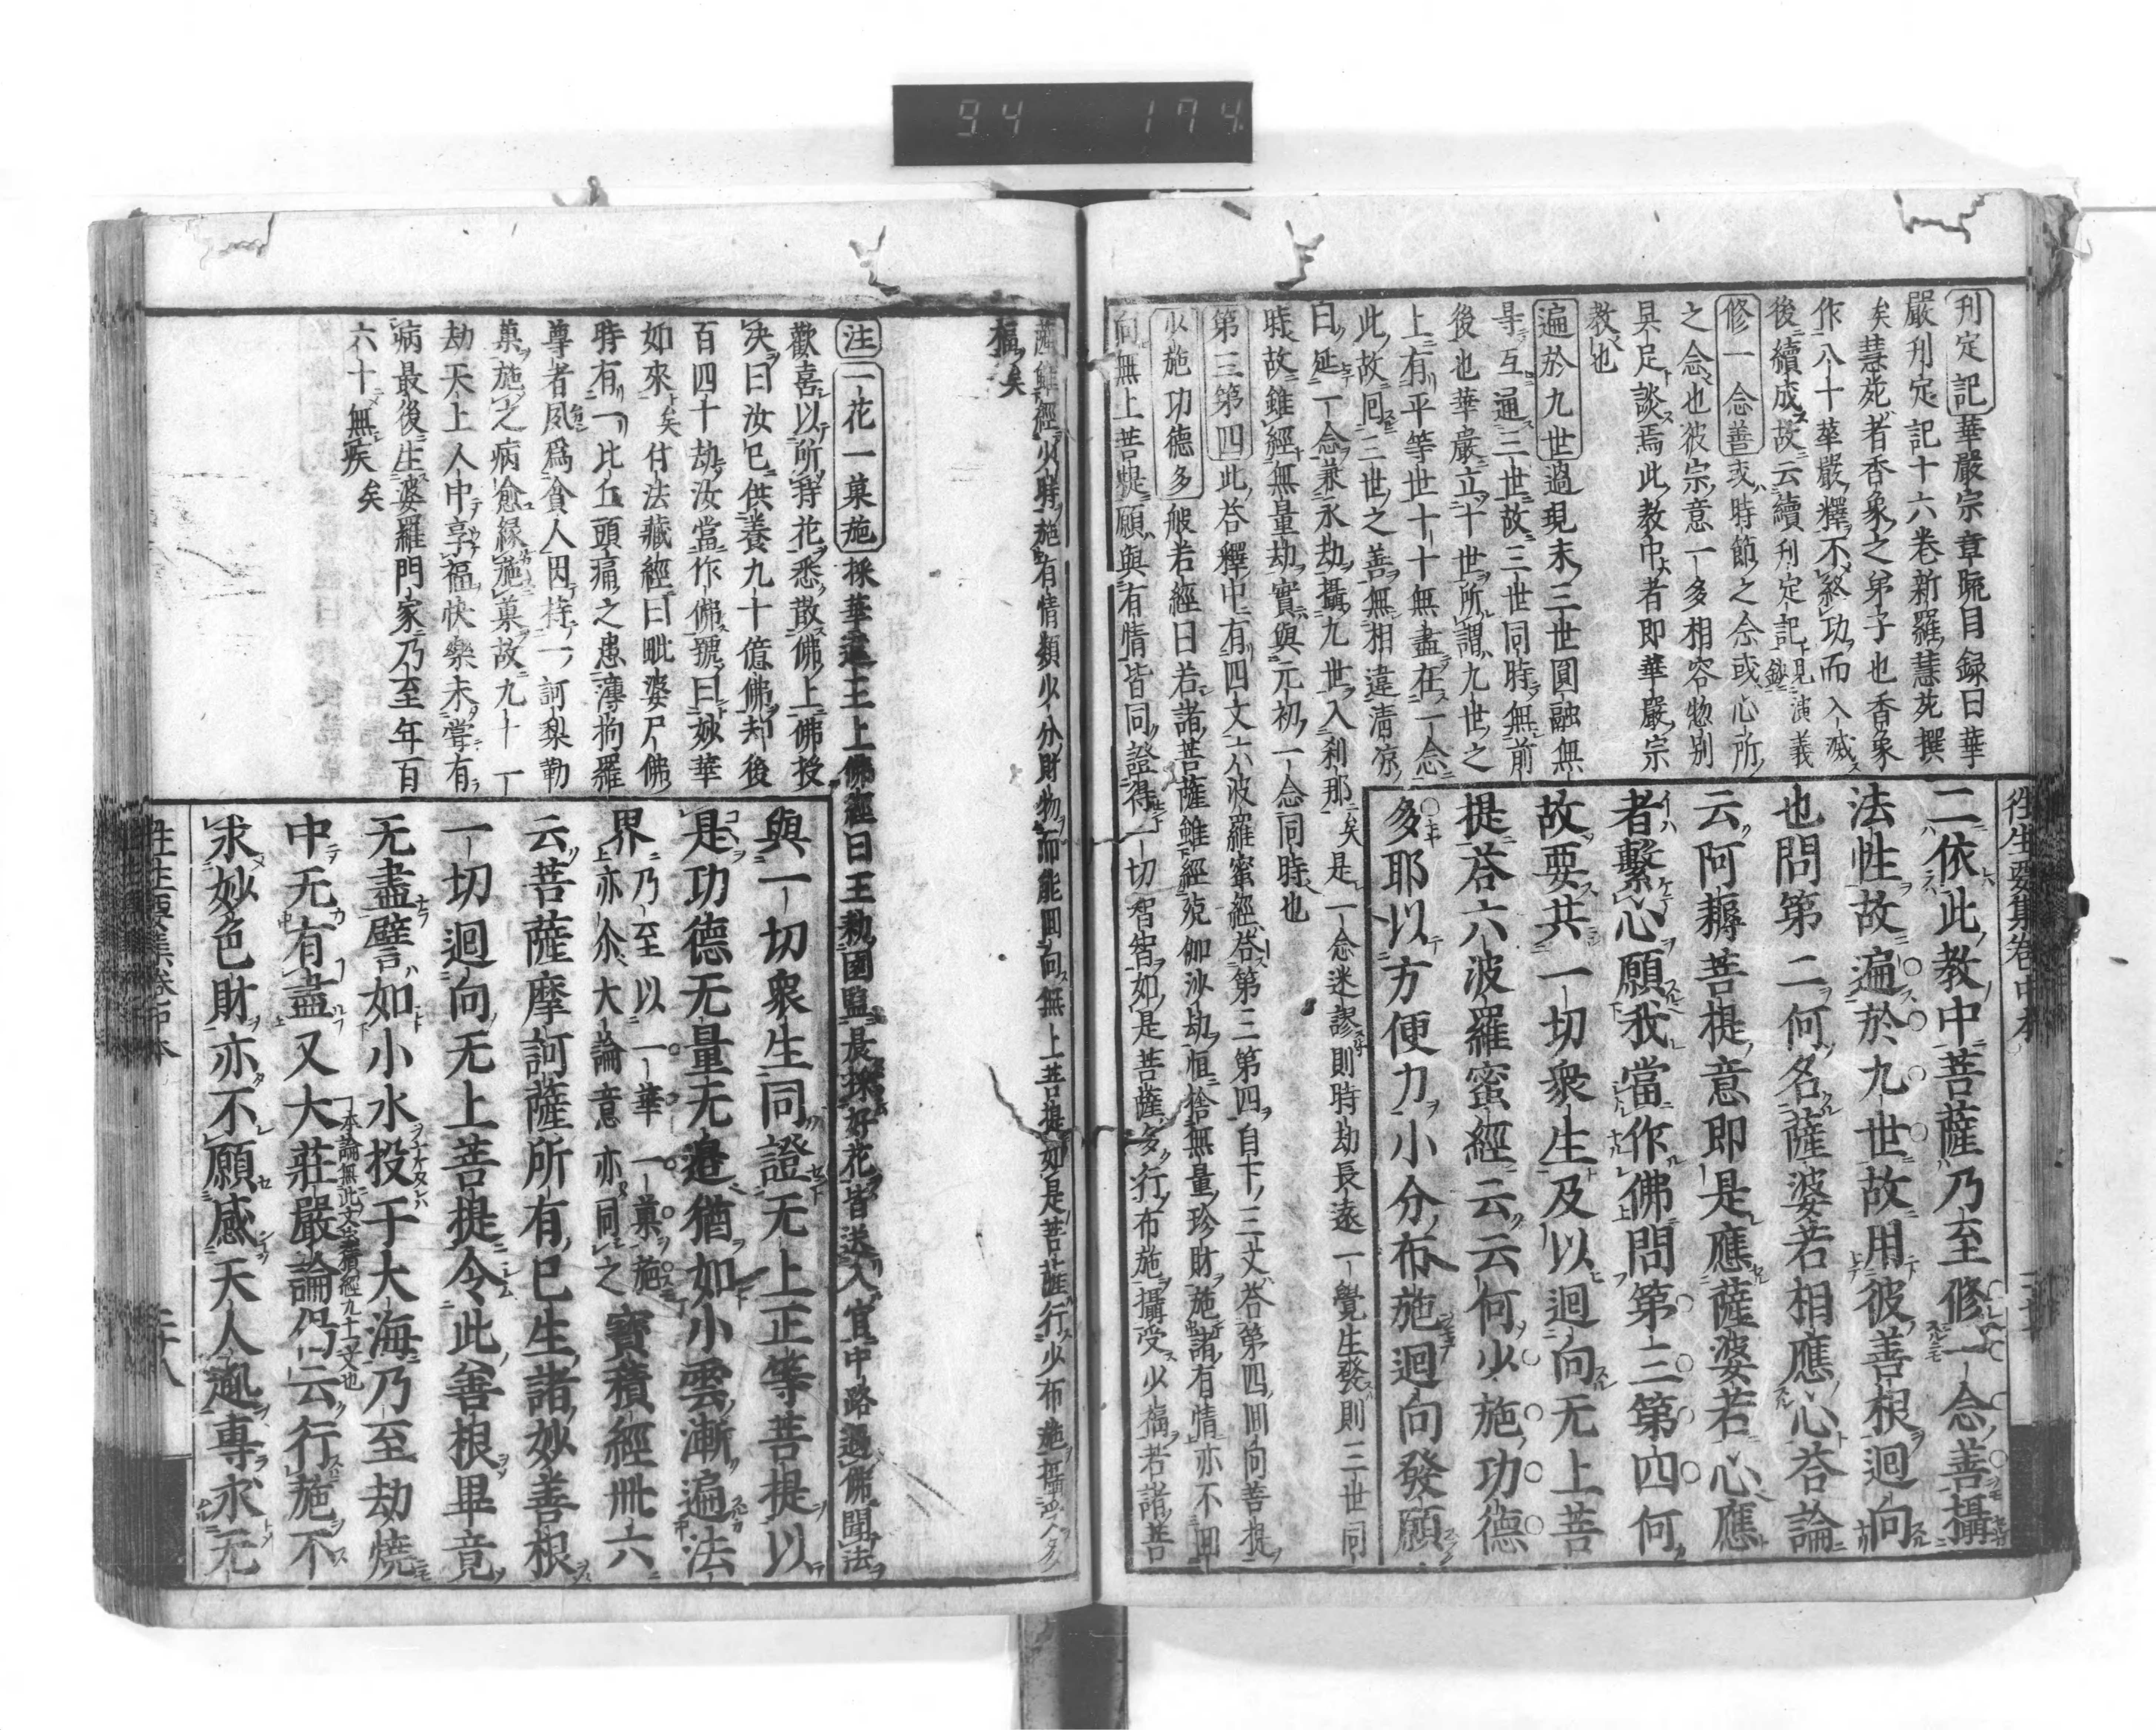 94 174
往生要集卷中本
刊定記華嚴宗章疏目録曰華
嚴刋定記十六巻新羅慧苑撰
矣慧苑者香象之弟子也香象
作八十華嚴釋不終功而入滅
後續成故云續刋定記見演義鈔
修一念善或時節之念或心所
之念也彼宗意一多相容惣別
具足談焉此教中者即華嚴宗
教也
遍於九世過現未三世圓融無
导互通三世故三世同時無前
後也華嚴立十世所謂九世之
上有平等世十十無盡在一念
此故回三世之善無相違清凉
曰延一念兼永劫攝九世入刹那矣是一念迷謬則時劫長遠一覺生發則三世同
時故雖經無量劫實與元初一念同時也
第三第四此荅釋中有四文六波羅蜜經荅第三第四自下三文荅第四回向菩提
少施功德多般若經曰若諸菩薩雖經殑伽沙劫恒捨無量珍財施諸有情亦不回
向無上菩提願與有情皆同證得一切智智如是菩薩多行布施攝受少福若諸菩
二依此教中菩薩乃至修一念善攝
法性故遍於九世故用彼善根迴向
也問第二何名薩婆若相應心荅論
云阿耨菩提意即是應薩婆若心應
者繫心願我當作佛問第三第四何
故要共一切衆生及以迴向无上菩
提荅六波羅蜜經云云何少施功德
多耶以方便力小分布施迴向發願
薩雖經少時施有情類少分財物而能回向無上菩提如是菩薩行少布施攝受多
福矣
注一花一菓施採華違王上佛經曰王勅國監晨採好花皆送入宮中路過佛聞法
歡喜以所持花悉散佛上佛授
决曰汝已供養九十億佛却後
百四十劫汝當作佛號曰妙華
如來矣付法藏經曰毗婆尸佛
時有一比丘頭痛之患薄拘羅
尊者夙爲貧人因持一訶梨勒
菓施之病愈縁施菓故九十一
劫天上人中享福快樂未嘗有
病最後生婆羅門家乃至年百
六十無疾矣
與一切衆生同證无上正等菩提以
是功德无量无邊猶如小雲漸遍法
界乃至以一華一菓施上亦尒大論意亦同之寶積經卌六
云菩薩摩訶薩所有已生諸妙善根
一切迴向无上菩提令此善根畢竟
无盡譬如小水投于大海乃至劫燒
中无有盡本論無此文寶積經九十一文也又大莊嚴論偈云行施不
求妙色財亦不願感天人趣專求无
往生要集卷中本
三十八